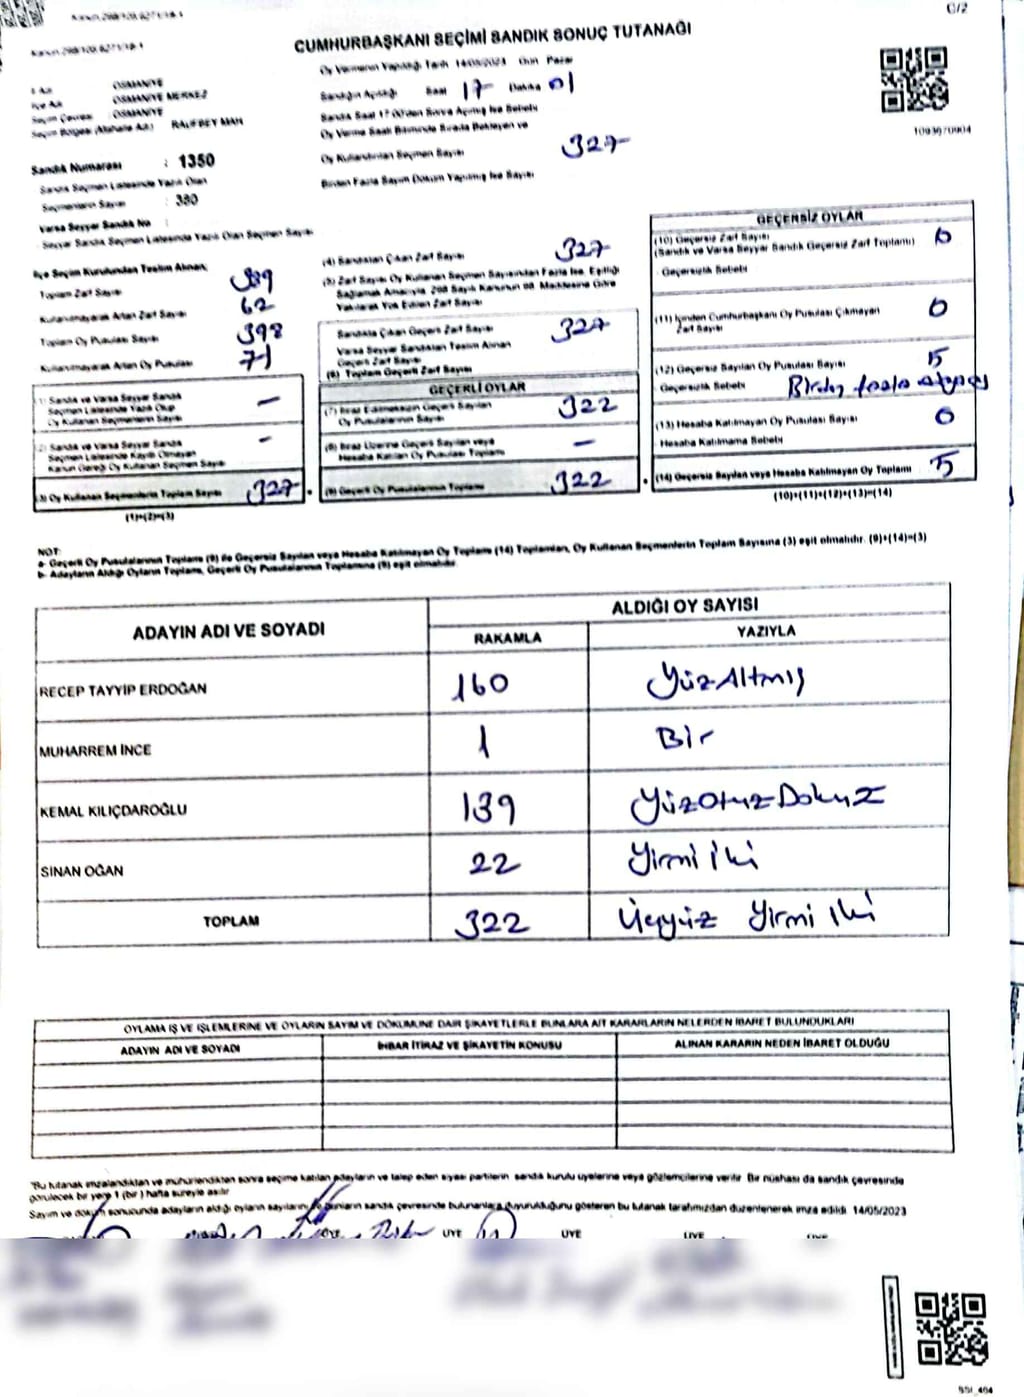 Kanun:298/109,6271/18-1
C/2
Kanun:298/109,6271/18-1
CUMHURBAŞKANI SEÇİMİ SANDIK SONUÇ TUTANAĞI
İl Adı : OSMANİYE
İlçe Adı : OSMANİYE MERKEZ
Seçim Çevresi : OSMANİYE
Seçim Bölgesi (Mahalle Adı) : RAUFBEY MAH.
Sandık Numarası : 1350
Sandık Seçmen Listesinde Yazılı Olan
Seçmenlerin Sayısı : 380
Varsa Seyyar Sandık No :
Seyyar Sandık Seçmen Listesinde Yazılı Olan Seçmen Sayısı
Oy Vermenin Yapıldığı Tarih 14/05/2023 Gün Pazar
Sandığın Açıldığı Saat 17 Dakika 01
Sandık Saat 17:00'den Sonra Açılmış İse Sebebi
Oy Verme Saati Bitiminde Sırada Bekleyen ve
Oy Kullandırılan Seçmen Sayısı 327
Birden Fazla Sayım Döküm Yapılmış İse Sayısı
1093670904
İlçe Seçim Kurulundan Teslim Alınan;
Toplam Zarf Sayısı 389
Kullanılmayarak Artan Zarf Sayısı 62
Toplam Oy Pusulası Sayısı 398
Kullanılmayarak Artan Oy Pusulası 71
(1) Sandık ve Varsa Seyyar Sandık
Seçmen Listesinde Yazılı Olup
Oy Kullanan Seçmenlerin Sayısı –
(2) Sandık ve Varsa Seyyar Sandık
Seçmen Listesinde Kayıtlı Olmayan
Kanun Gereği Oy Kullanan Seçmen Sayısı –
(3) Oy Kullanan Seçmenlerin Toplam Sayısı 327
(1)+(2)=(3)
(4) Sandıktan Çıkan Zarf Sayısı 327
(5) Zarf Sayısı Oy Kullanan Seçmen Sayısından Fazla İse, Eşitliği
Sağlamak Amacıyla, 298 Sayılı Kanunun 98. Maddesine Göre
Yakılarak Yok Edilen Zarf Sayısı
Sandıkta Çıkan Geçerli Zarf Sayısı 327
Varsa Seyyar Sandıktan Teslim Alınan
Geçerli Zarf Sayısı
(6) Toplam Geçerli Zarf Sayısı
GEÇERLİ OYLAR
(7) İtiraz Edilmeksizin Geçerli Sayılan
Oy Pusulalarının Sayısı 322
(8) İtiraz Üzerine Geçerli Sayılan veya
Hesaba Katılan Oy Pusulası Toplamı –
(9) Geçerli Oy Pusulalarının Toplamı 322
GEÇERSİZ OYLAR
(10) Geçersiz Zarf Sayısı
(Sandık ve Varsa Seyyar Sandık Geçersiz Zarf Toplamı) 0
Geçersizlik Sebebi
(11) İçinden Cumhurbaşkanı Oy Pusulası Çıkmayan
Zarf Sayısı 0
(12) Geçersiz Sayılan Oy Pusulası Sayısı 5
Geçersizlik Sebebi Birden fazla
(13) Hesaba Katılmayan Oy Pusulası Sayısı 0
Hesaba Katılmama Sebebi
(14) Geçersiz Sayılan veya Hesaba Katılmayan Oy Toplamı 5
(10)+(11)+(12)+(13)=(14)
NOT:
a- Geçerli Oy Pusulalarının Toplamı (9) ile Geçersiz Sayılan veya Hesaba Katılmayan Oy Toplamı (14) Toplamları, Oy Kullanan Seçmenlerin Toplam Sayısına (3) eşit olmalıdır. (9)+(14)=(3)
b- Adayların Aldığı Oyların Toplamı, Geçerli Oy Pusulalarının Toplamına (9) eşit olmalıdır.
ADAYIN ADI VE SOYADI
ALDIĞI OY SAYISI
RAKAMLA YAZIYLA
RECEP TAYYİP ERDOĞAN 160 YüzAltmış
MUHARREM İNCE 1 Bir
KEMAL KILIÇDAROĞLU 139 YüzOtuzDokuz
SİNAN OĞAN 22 Yirmi iki
TOPLAM 322 Üçyüz Yirmi iki
OYLAMA İŞ VE İŞLEMLERİNE VE OYLARIN SAYIM VE DÖKÜMÜNE DAİR ŞİKAYETLERLE BUNLARA AİT KARARLARIN NELERDEN İBARET BULUNDUKLARI
ADAYIN ADI VE SOYADI İHBAR İTİRAZ VE ŞİKAYETİN KONUSU ALINAN KARARIN NEDEN İBARET OLDUĞU
"Bu tutanak imzalandıktan ve mühürlendikten sonra seçime katılan adayların ve talep eden siyasi partilerin sandık kurulu üyelerine veya gözlemcilerine verilir. Bir nüshası da sandık çevresinde
görülecek bir yere 1 (bir) hafta süreyle asılır
Sayım ve döküm sonucunda adayların aldığı oyların sayılarını ve bunların sandık çevresinde bulunanlara duyurulduğunu gösteren bu tutanak tarafımızdan düzenlenerek imza edildi. 14/05/2023
ÜYE ÜYE ÜYE ÜYE
SSI_464